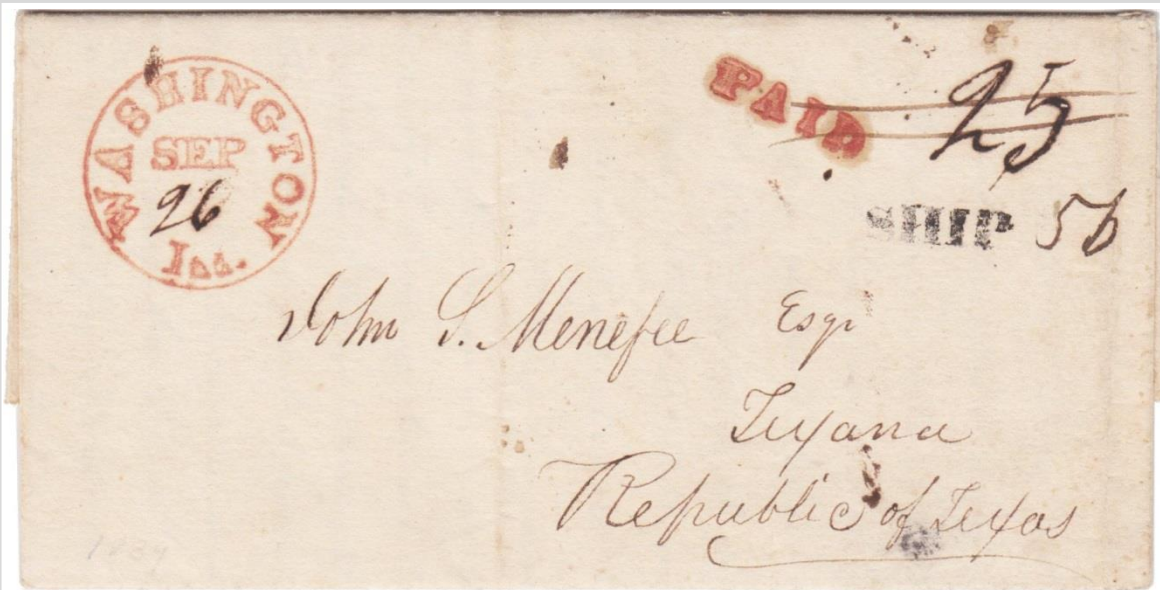 WASHINGTON
SEP
26
Ill.
PAID 25
SHIP 56
John S. Menefee Esqr
Texana
Republic of Texas